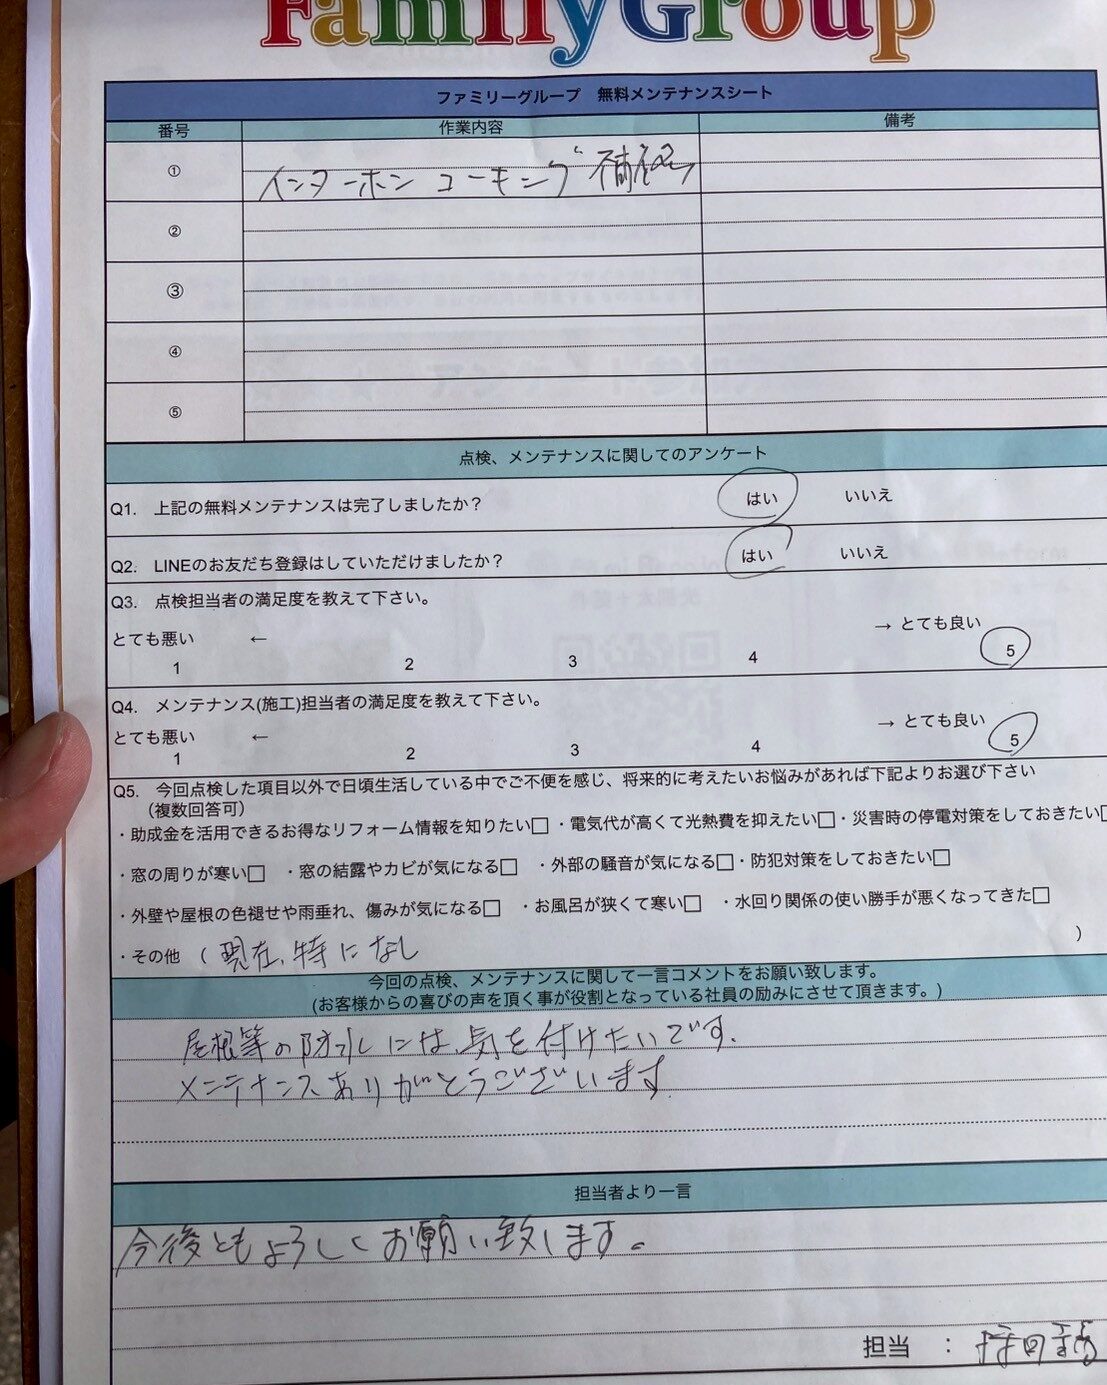 FamilyGroup
ファミリーグループ 無料メンテナンスシート
番号 作業内容 備考
① インターホン コーキング 補修
②
③
④
⑤
点検、メンテナンスに関してのアンケート
Q1. 上記の無料メンテナンスは完了しましたか? はい いいえ
Q2. LINEのお友だち登録はしていただけましたか? はい いいえ
Q3. 点検担当者の満足度を教えて下さい。
とても悪い ← → とても良い
1 2 3 4 5
Q4. メンテナンス(施工)担当者の満足度を教えて下さい。
とても悪い ← → とても良い
1 2 3 4 5
Q5. 今回点検した項目以外で日頃生活している中でご不便を感じ、将来的に考えたいお悩みがあれば下記よりお選び下さい
(複数回答可)
・助成金を活用できるお得なリフォーム情報を知りたい□ ・電気代が高くて光熱費を抑えたい□ ・災害時の停電対策をしておきたい□
・窓の周りが寒い□ ・窓の結露やカビが気になる□ ・外部の騒音が気になる□ ・防犯対策をしておきたい□
・外壁や屋根の色褪せや雨垂れ、傷みが気になる□ ・お風呂が狭くて寒い□ ・水回り関係の使い勝手が悪くなってきた□
・その他 ( 現在、特になし )
今回の点検、メンテナンスに関して一言コメントをお願い致します。
(お客様からの喜びの声を頂く事が役割となっている社員の励みにさせて頂きます。)
屋根等の防水には、気を付けたいです。
メンテナンスありがとうございます
担当者より一言
今後ともよろしくお願い致します。
担当 :